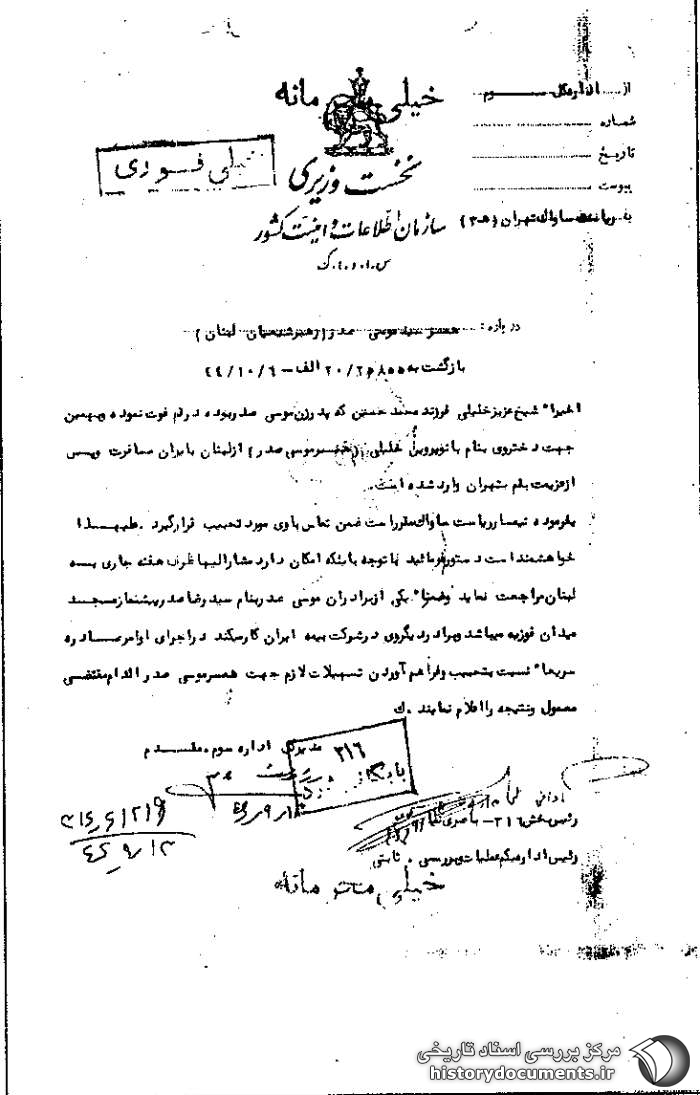 خیلی محرمانه
از اداره کل سوم
شماره
تاریخ
پیوست
خیلی فوری
نخست وزیری
سازمان اطلاعات و امنیت کشور
س.ا.و.ا.ک
به ریاست ساواک تهران (۳ه)
درباره: همسر سید موسی صدر (رهبر شیعیان لبنان)
بازگشت به ۲۰ الف – ۲۴/۱۰/۶
اخیرا" شیخ عزیز خلیلی فرزند محمد حسین که پدر زن موسی صدر بوده در قم فوت نموده و بهمین
جهت دختر وی بنام بانو پروین خلیلی (همسر موسی صدر) از لبنان بایران مسافرت و پس
از عزیمت بقم بتهران وارد شده است.
بفرموده تیمسار ریاست ساواک مقرر است ضمن تماس با وی مورد تحبیب قرار گیرد. علیهذا
خواهشمند است دستور فرمائید با توجه باینکه امکان دارد مشارالیها ظرف هفته جاری به
لبنان مراجعت نماید و ضمنا" یکی از برادران موسی صدر بنام سید رضا صدر پیشنماز مسجد
میدان فوزیه میباشد و برادر دیگر وی در شرکت بیمه ایران کار میکند در اجرای اوامر صادره
سریعا" نسبت بتحبیب و فراهم آوردن تسهیلات لازم جهت همسر موسی صدر اقدام مقتضی
معمول و نتیجه را اعلام نمایند. ک
مدیرکل اداره سوم. مقدم
۳۱۶
بایگانی شود
رئیس بخش ۳۱۶ – ناصری
رئیس اداره یکم عملیات و بررسی. ثابتی
خیلی محرمانه
مرکز بررسی اسناد تاریخی
historydocuments.ir